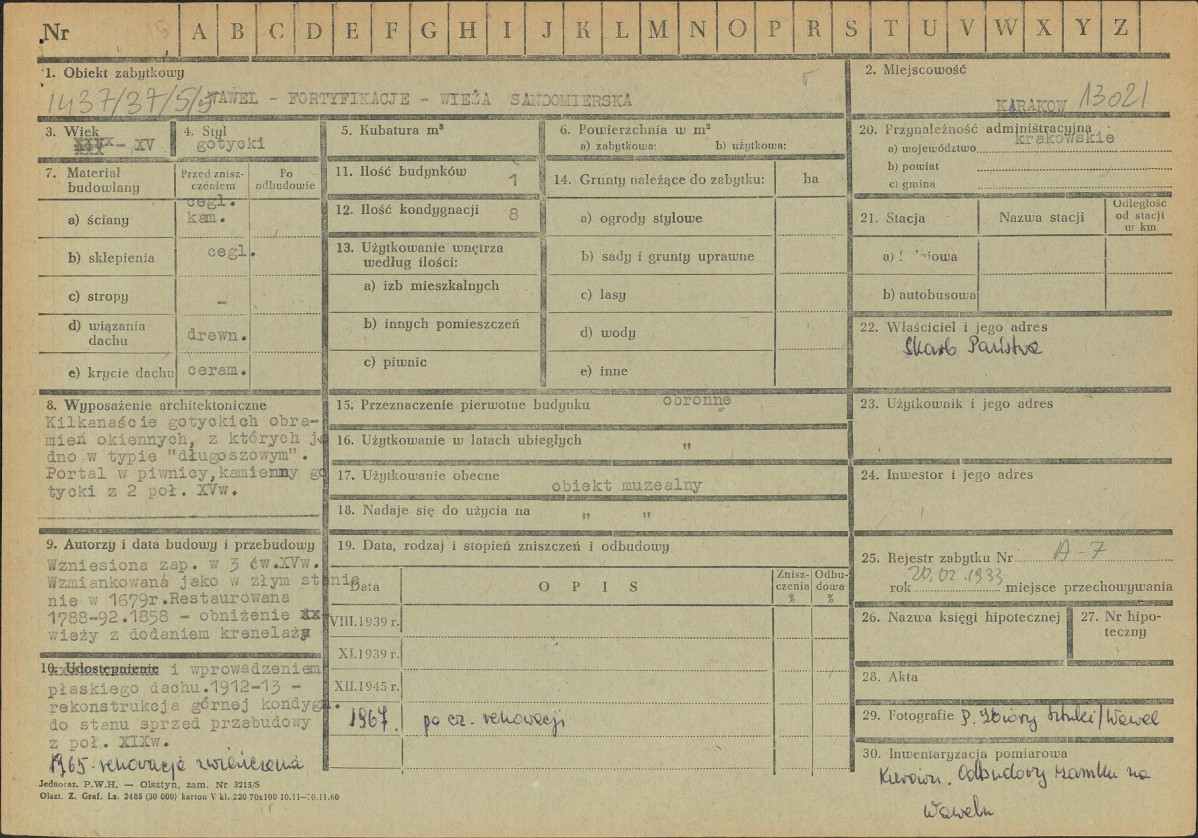 Nr A B C D E F G H I J K L M N O P R S T U V W X Y Z
1. Obiekt zabytkowy
1437/37/5/5 WAWEL - FORTYFIKACJE - WIEŻA SANDOMIERSKA
2. Miejscowość
KRAKOW 13021
3. Wiek
- XV
4. Styl
gotycki
5. Kubatura m³
6. Powierzchnia w m²
a) zabytkowa: b) użytkowa:
20. Przynależność administracyjna
krakowskie
a) województwo
b) powiat
c) gmina
7. Materiał
budowlany
Przed znisz-
czeniem
Po
odbudowie
a) ściany
cegl.
kam.
b) sklepienia cegl.
c) stropy -
d) wiązania
dachu drewn.
e) krycie dachu ceram.
11. Ilość budynków 1
12. Ilość kondygnacji 8
13. Użytkowanie wnętrza
według ilości:
a) izb mieszkalnych
b) innych pomieszczeń
c) piwnic
14. Grunty należące do zabytku: ha
a) ogrody stylowe
b) sady i grunty uprawne
c) lasy
d) wody
e) inne
21. Stacja Nazwa stacji
Odległość
od stacji
w km
a)
b) autobusowa
22. Właściciel i jego adres
Skarb Państwa
8. Wyposażenie architektoniczne
Kilkanaście gotyckich obra-
mień okiennych, z których je
dno w typie "długoszowym".
Portal w piwnicy,kamienny go
tycki z 2 poł. XVw.
15. Przeznaczenie pierwotne budynku obronne
16. Użytkowanie w latach ubiegłych "
17. Użytkowanie obecne
obiekt muzealny
18. Nadaje się do użycia na " "
23. Użytkownik i jego adres
24. Inwestor i jego adres
9. Autorzy i data budowy i przebudowy
Wzniesiona zap. w 3 ćw.XVw.
Wzmiankowana jako w złym stanie
nie w 1679r.Restaurowana
1788-92.1858 - obniżenie
wieży z dodaniem krenelaży
10. Udostępnienie i wprowadzeniem
płaskiego dachu.1912-13 -
rekonstrukcja górnej kondygn.
do stanu sprzed przebudowy
z poł. XIXw.
1965-renowacja zwieńczenia
19. Data, rodzaj i stopień zniszczeń i odbudowy
Data O P I S
Znisz-
czenia
%
Odbu-
dowa
%
VIII.1939 r.
XI.1939 r.
XII.1945 r.
1967. po cz. renowacji
25. Rejestr zabytku Nr A-7
20.02.1933
rok miejsce przechowywania
26. Nazwa księgi hipotecznej
27. Nr hipo-
teczny
28. Akta
29. Fotografie P. Zbiory Sztuki/Wawel
30. Inwentaryzacja pomiarowa
Kierown. Odbudowy zamku na
Wawelu
Jednoraz. P.W.H. — Olsztyn, zam. Nr 3215/S
Olszt. Z. Graf. Lz. 2485 (30 000) karton V kl. 220 70x100 10.11—10.11.60